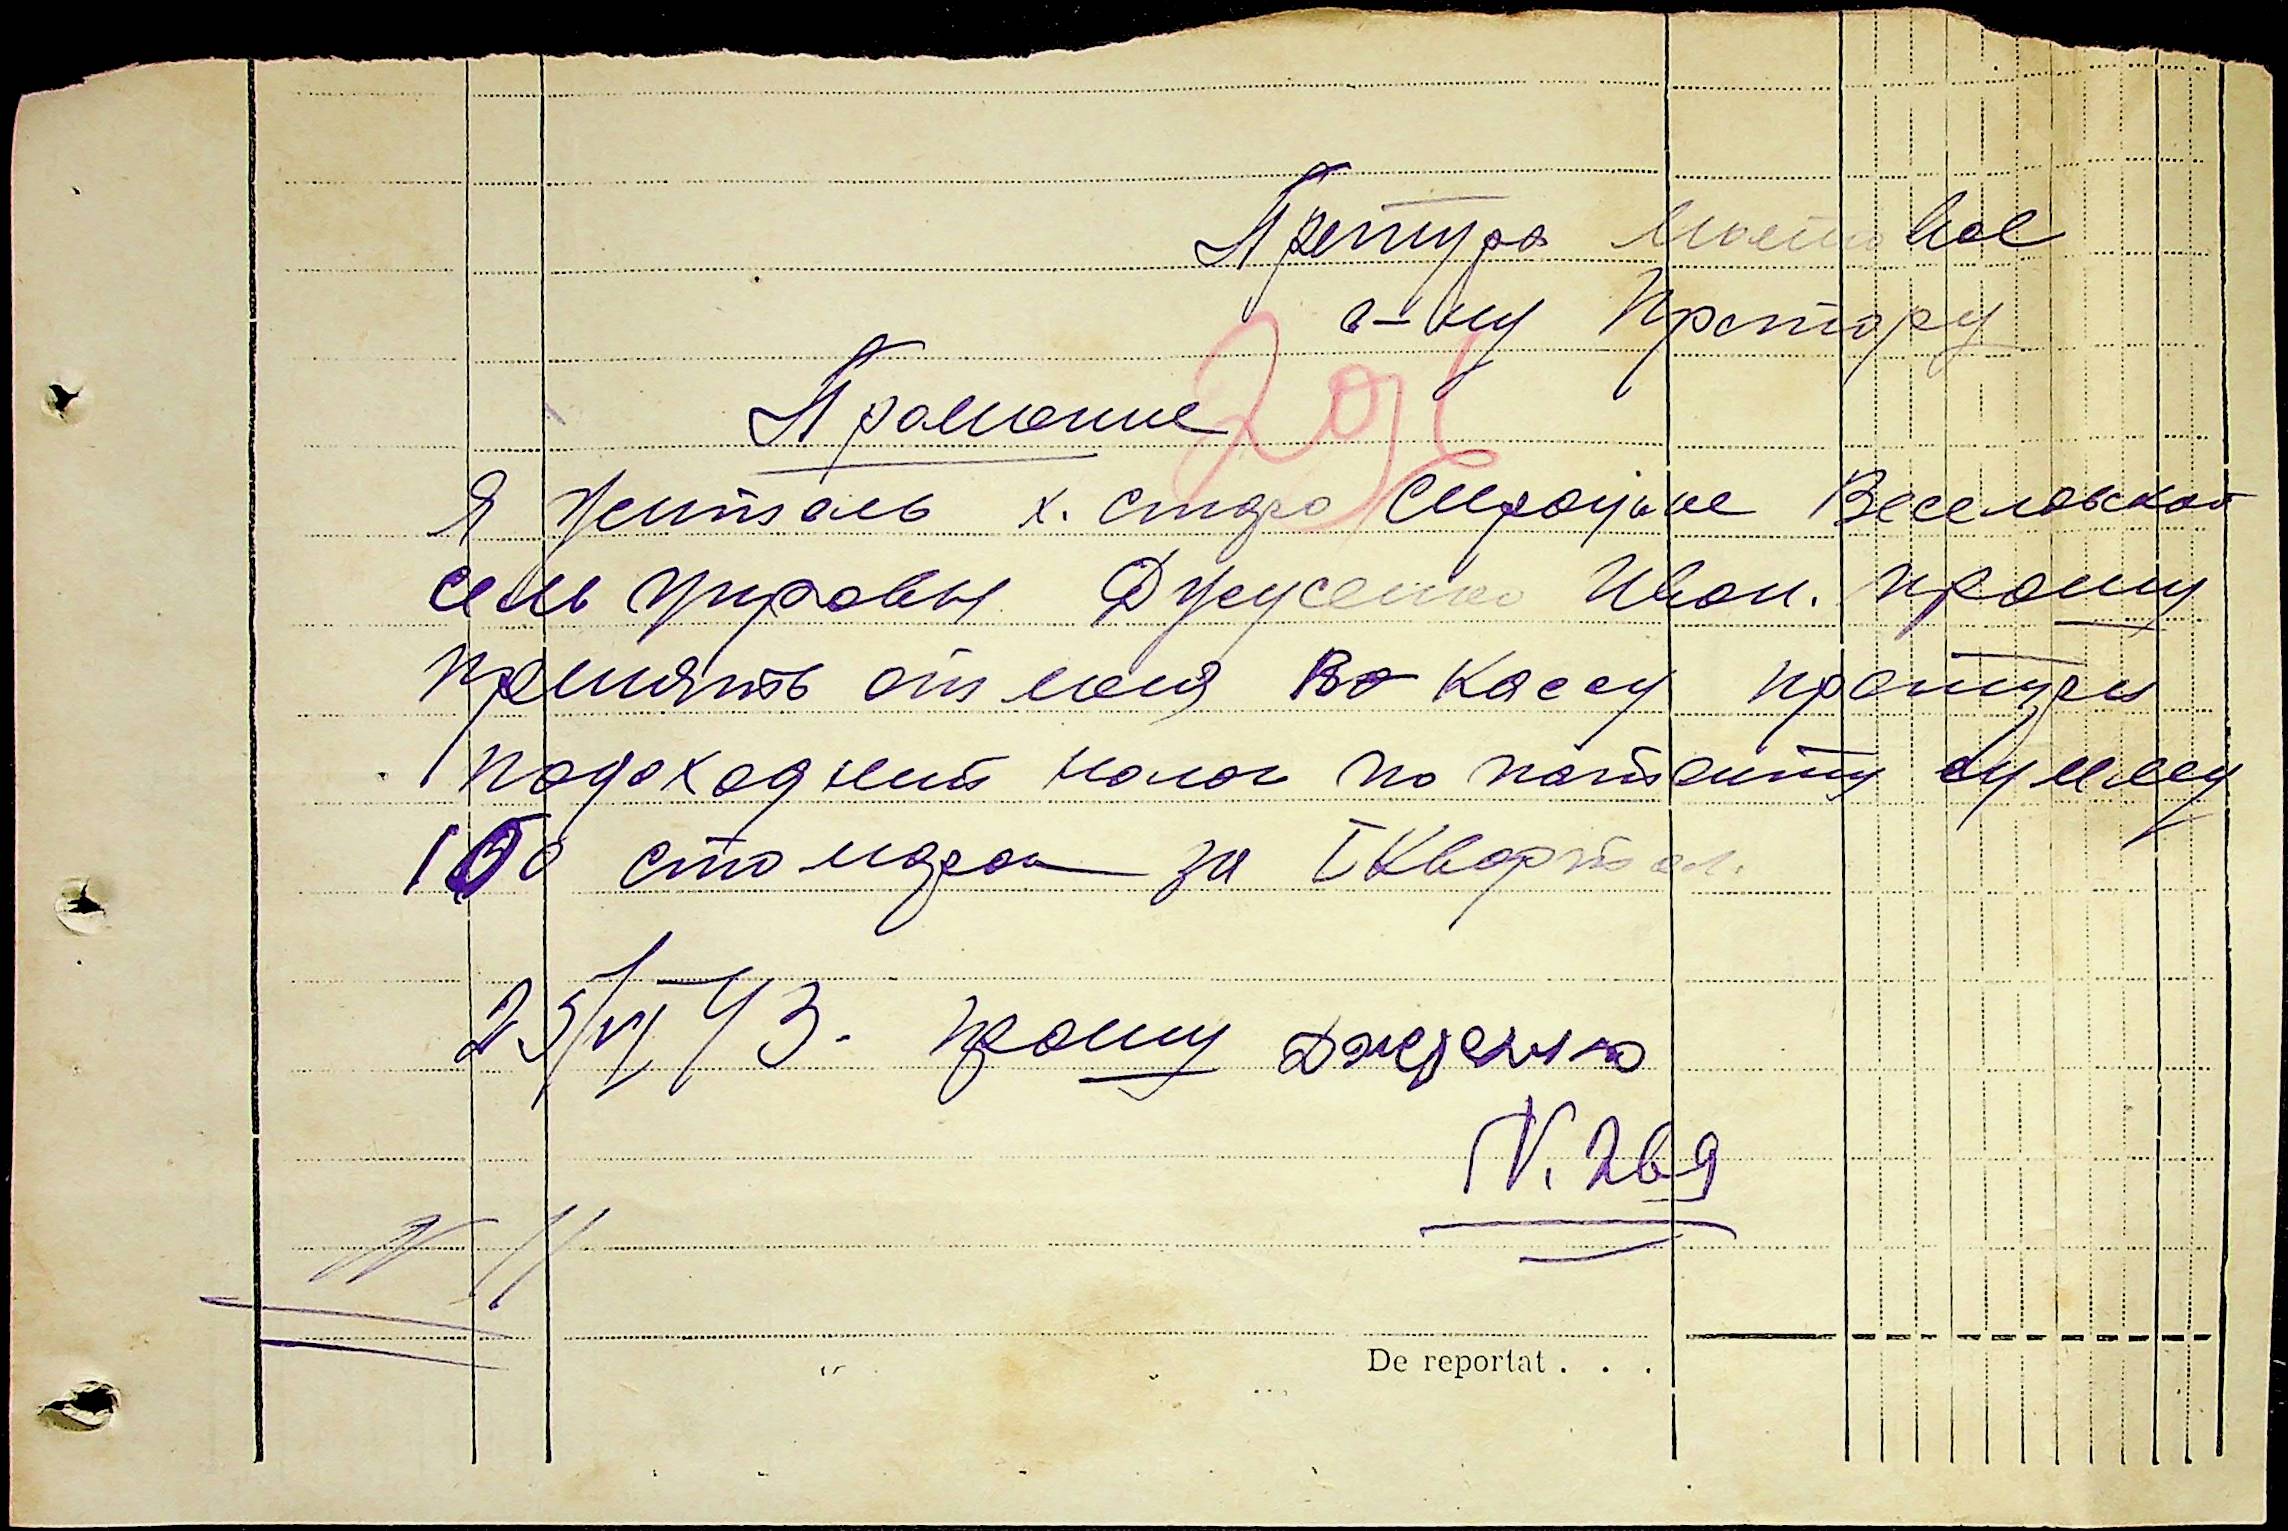 Претура Мостовое
г-ну Претору
Прошение
201
Я житель х. старо Сироцкие Веселовской
сель управы Джусенко Иван. прошу
принять от меня во кассу претуры
подоходний налог по патенту сумму
100 сто марок за I квартал.
25/VI 43. прошу
N. 269
N 11
De reportat . . .